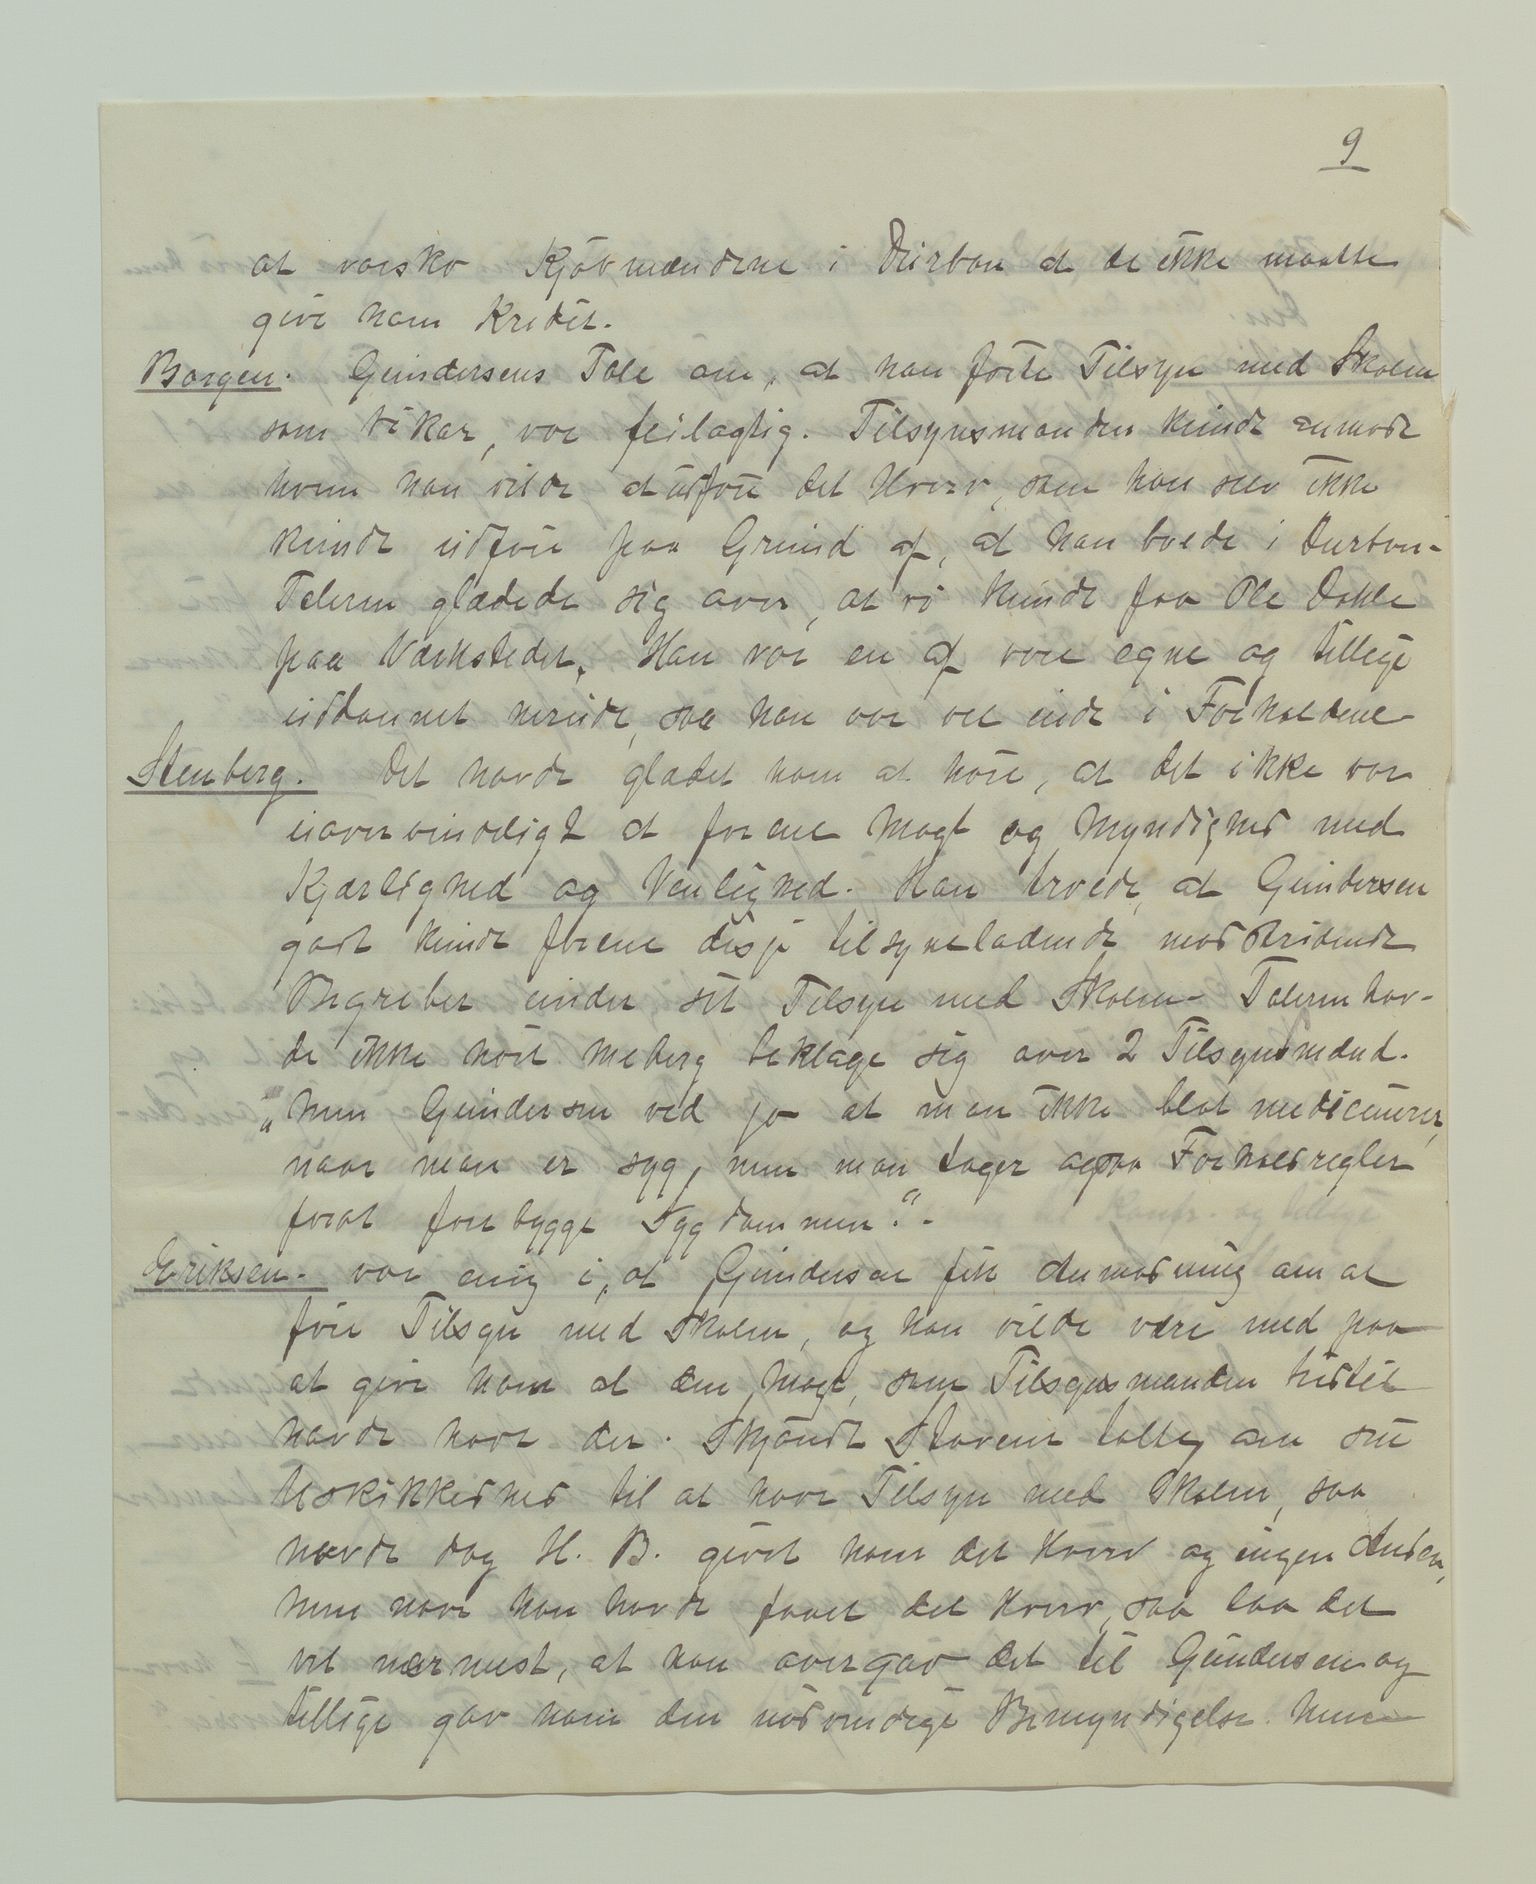 9
at varsko Kjøbmændene i Durban at de ikke maatte
give ham Kredit.
Borgen. Gundersens Tale om, at han førte Tilsyn med Skolen
som Vikar, var feilagtig. Tilsynsmanden kunde anmode
hvem han vilde at udføre det Hverv, som han selv ikke
kunde udføre paa Grund af, at han boede i Durban.
Taleren glædede sig over, at vi kunde faa Ole Dahle
paa Værkstedet. Han var en af vore egne og tillige
uddannet herude, saa han var vel inde i Forholdene
Stenberg. Det havde glædet ham at høre, at det ikke var
uovervindeligt at forene Magt og Myndighed med
Kjærlighed og Venlighed. Han troede, at Gundersen
godt kunde forene disse tilsyneladende modstridende
Begreber under sit Tilsyn med Skolen. Taleren hav-
de ikke hørt Meberg beklage sig over 2 Tilsynsmænd.
"Men Gundersen ved jo at man ikke blot medicinerer,
naar man er syg, men man tager ogsaa Forholdsregler
forat forebygge Sygdommen".
Eriksen. var enig i, at Gundersen fik Anmodning om at
føre Tilsyn med Skolen, og han vilde være med paa
at give ham al den Magt, som Tilsynsmanden hidtil
havde havt der. Skjøndt Stavem talte om sin
Uskikkethed til at have Tilsyn med Skolen, saa
havde dog H. B. givet ham det Hverv og ingen Anden,
men naar han havde faaet det Hverv, saa laa det
vel nærmest, at han overgav det til Gundersen og
tillige gav ham den nødvendige Bemyndigelse. Men